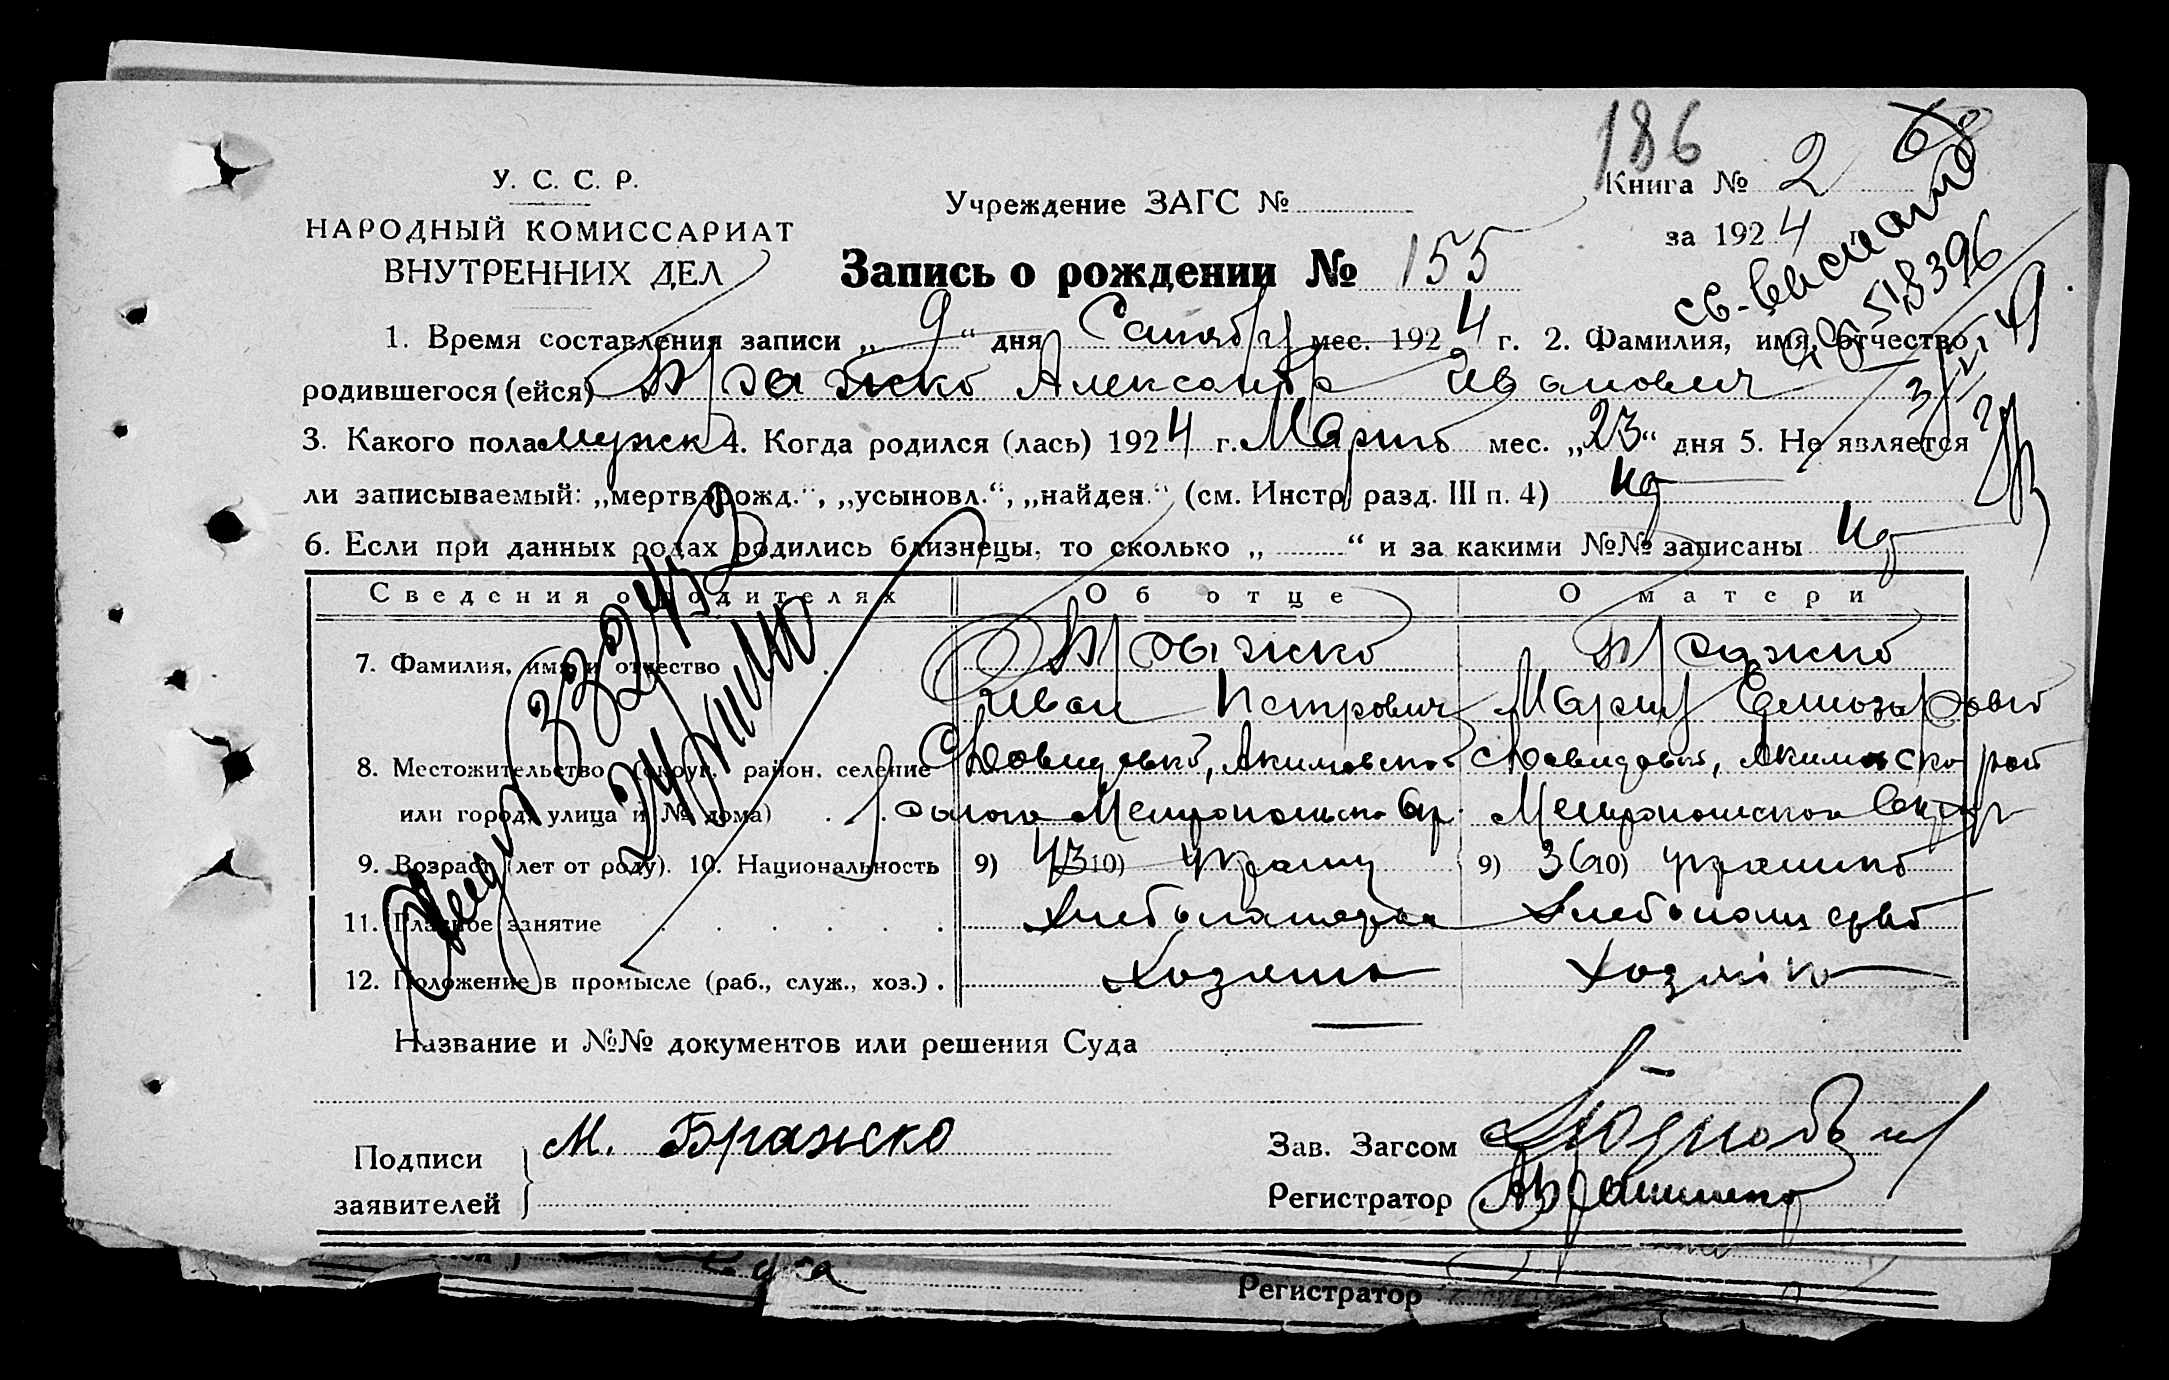 186
У. С. С. Р.
НАРОДНЫЙ КОМИССАРИАТ
ВНУТРЕННИХ ДЕЛ
Учреждение ЗАГС №
Книга № 2
за 1924 г.
Запись о рождении № 155
св-во выслано
518396
1. Время составления записи „ 9 “ дня Сентября мес. 1924 г. 2. Фамилия, имя, отчество
родившегося (ейся) Бражко Александр Иванович
3. Какого пола мужск 4. Когда родился (лась) 1924 г. Марта мес. „23“ дня 5. Не является
ли записываемый: „мертворожд.“, „усыновл.“, „найден.“ (см. Инстр. разд. III п. 4) нет
6. Если при данных родах родились близнецы, то сколько „ “ и за какими №№ записаны нет
Сведения о родителях Об отце О матери
7. Фамилия, имя и отчество Бражко Бражко
Иван Петрович Мария Елиозаровна
8. Местожительство (округ, район, селение Давидовка, Акимовского Давидовка, Акимовского рай
или город, улица и № дома) района Мелитопольск. окр. Мелитопольского окр
9. Возраст (лет от роду). 10. Национальность 9) 43 10) украин 9) 36 10) украинка
11. Главное занятие Хлебопашество Хлебопашество
12. Положение в промысле (раб., служ., хоз.) Хозяин Хозяйка
332432
Название и №№ документов или решения Суда
Подписи
заявителей
М. Бражско
Зав. Загсом
Регистратор
Регистратор